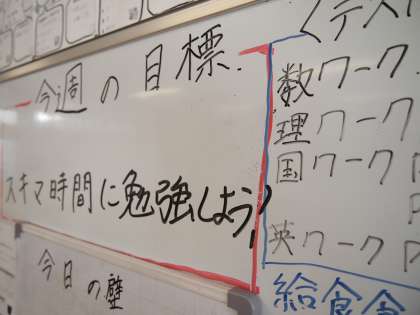 今週の目標
スキマ時間に勉強しよう!
今日の壁
〈テスト
数ワーク
理ワーク
国ワーク P
P
英ワーク P
給食食